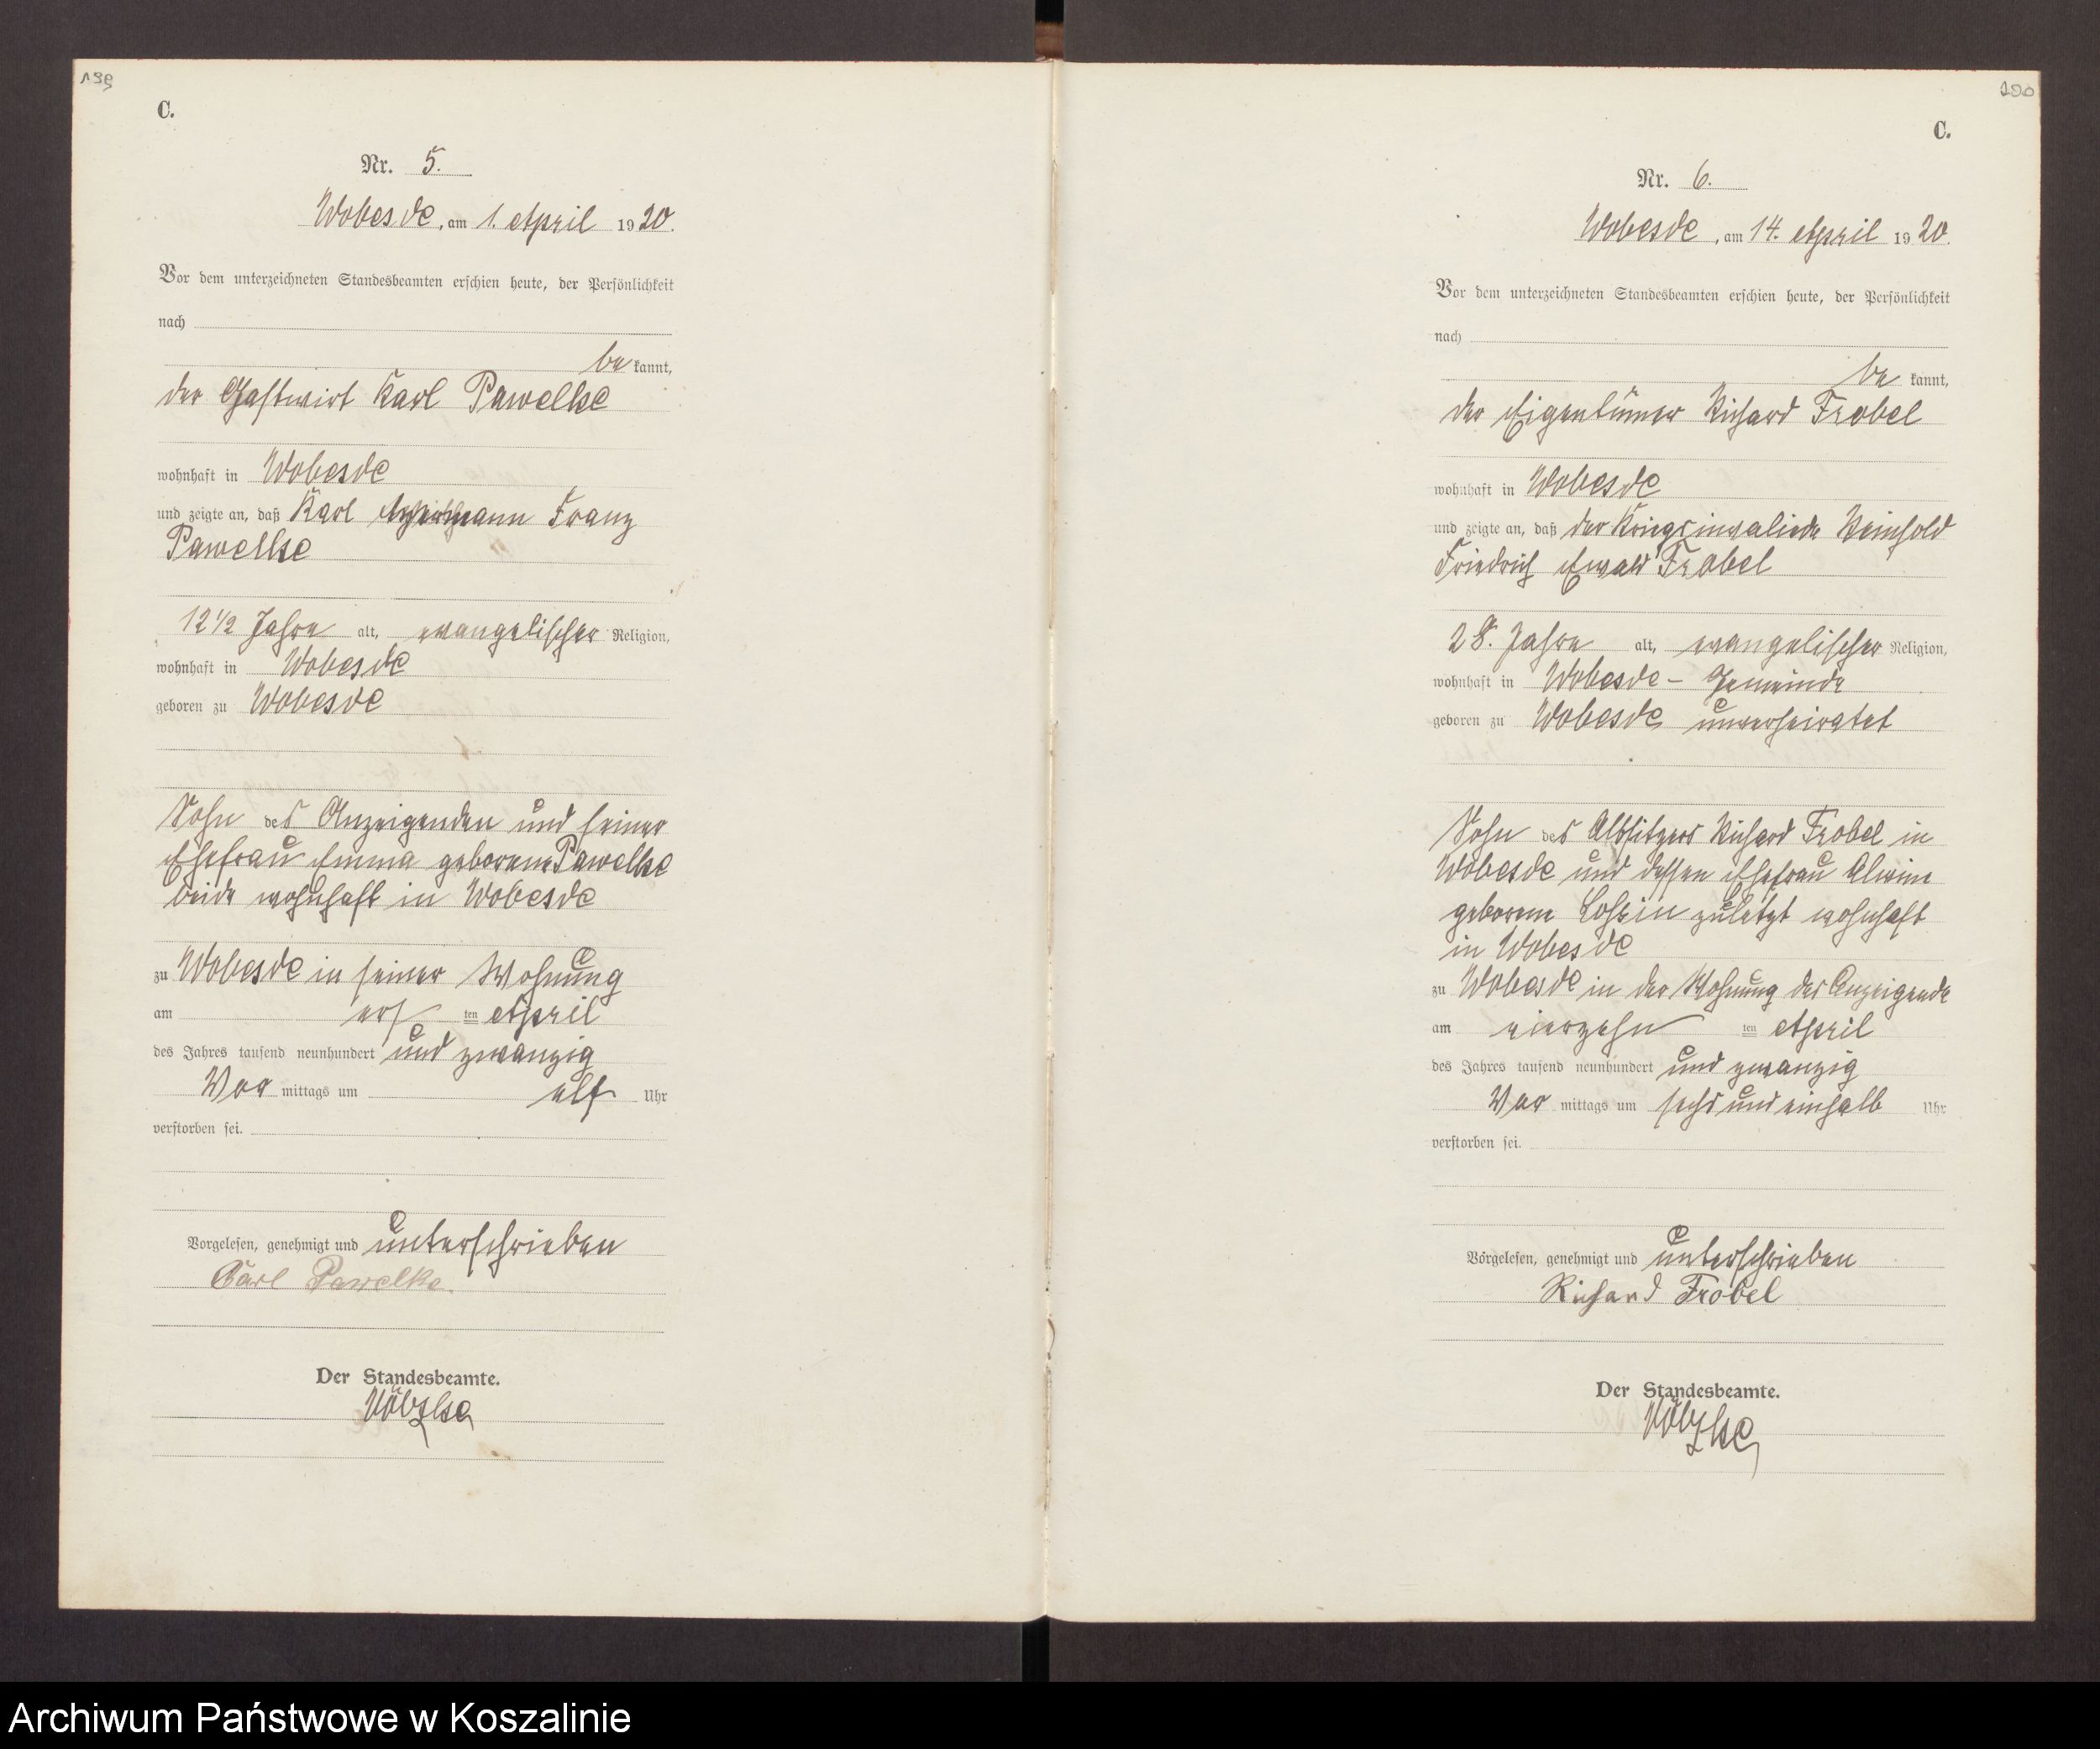 139
C.
Nr. 5.
Wobesde, am 1. April 1920.
Vor dem unterzeichneten Standesbeamten erschien heute, der Persönlichkeit
nach
be kannt,
der Gastwirt Karl Pawelke
wohnhaft in Wobesde
und zeigte an, daß Karl Franz
Pawelke
12 1/2 Jahre alt, evangelischer Religion,
wohnhaft in Wobesde
geboren zu Wobesde
Sohn des Anzeigenden und seiner
Ehefrau Emma geborene Pawelke
beide wohnhaft in Wobesde
zu Wobesde in seiner Wohnung
am ersten April
des Jahres tausend neunhundert und zwanzig
Vor mittags um elf Uhr
verstorben sei.
Vorgelesen, genehmigt und unterschrieben
Carl Pawelke.
Der Standesbeamte.
C.
Nr. 6.
Wobesde, am 14. April 1920.
Vor dem unterzeichneten Standesbeamten erschien heute, der Persönlichkeit
nach
be kannt,
der Eigentümer Richard Frobel
wohnhaft in Wobesde
und zeigte an, daß der Kriegsinvaliede Reinhold
Friedrich Ewald Frobel
28. Jahre alt, evangelischer Religion,
wohnhaft in Wobesde - Gemeinde
geboren zu Wobesde unverheiratet
Sohn des Altsitzers Richard Frobel in
Wobesde und dessen Ehefrau Alwine
geborene zuletzt wohnhaft
in Wobesde
zu Wobesde in der Wohnung des Anzeigende
am vierzehn ten April
des Jahres tausend neunhundert und zwanzig
Vor mittags um sechs und einhalb Uhr
verstorben sei.
Vorgelesen, genehmigt und unterschrieben
Richard Frobel
Der Standesbeamte.
Archiwum Państwowe w Koszalinie